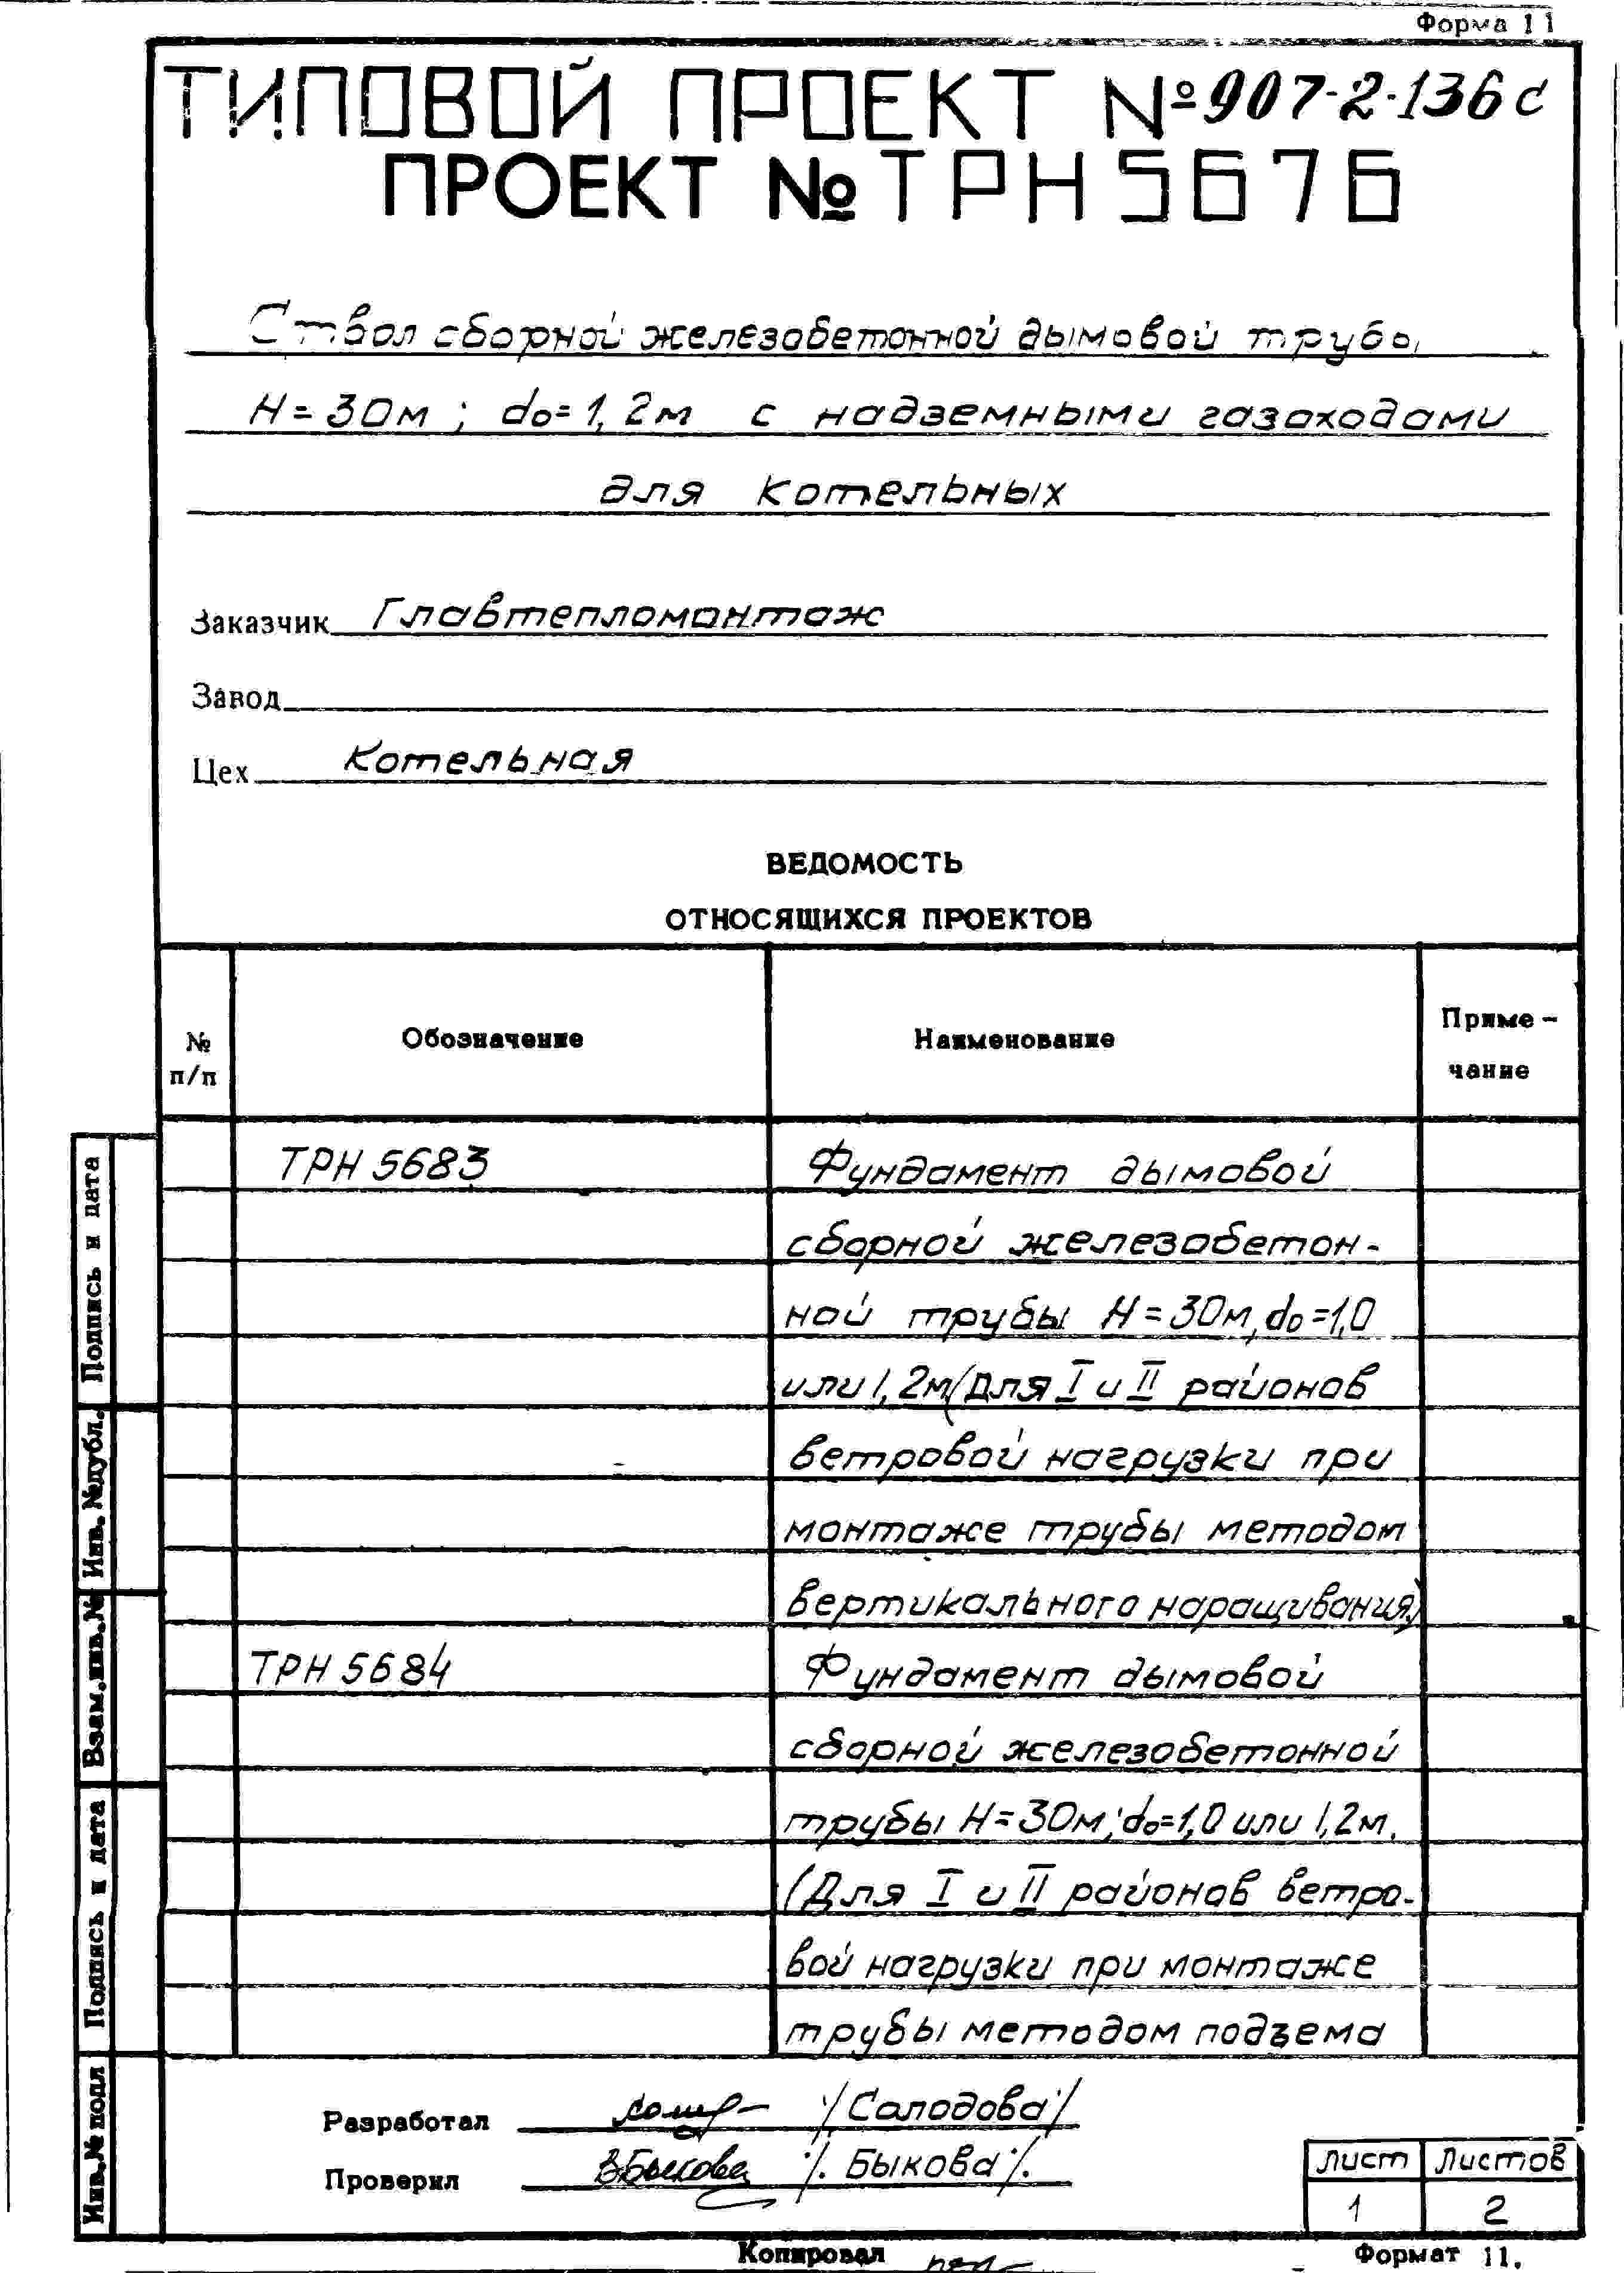 Форма 11
ТИПОВОЙ ПРОЕКТ №907-2-136с
ПРОЕКТ №ТРН5676
Ствол сборной железобетонной дымовой трубы
Н=30м; do=1,2м с надземными газоходами
для котельных
Заказчик Главтепломонтаж
Завод
Цех Котельная
ВЕДОМОСТЬ
ОТНОСЯЩИХСЯ ПРОЕКТОВ
№ п/п
Обозначение
Наименование
Приме-
чание
ТРН 5683
Фундамент дымовой
сборной железобетон-
ной трубы Н=30м, do=1,0
или 1,2м (Для I и II районов
ветровой нагрузки при
монтаже трубы методом
вертикального наращивания)
ТРН 5684
Фундамент дымовой
сборной железобетонной
трубы Н=30м; do=1,0 или 1,2м.
(Для I и II районов ветро-
вой нагрузки при монтаже
трубы методом подъема
Подпись и дата
Инв. №дубл.
Взам.инв.№
Подпись и дата
Инв.№ подл
Разработал /Солодова/
Проверил ВБыкова /. Быкова/.
Лист Листов
1 2
Копировал
Формат 11.